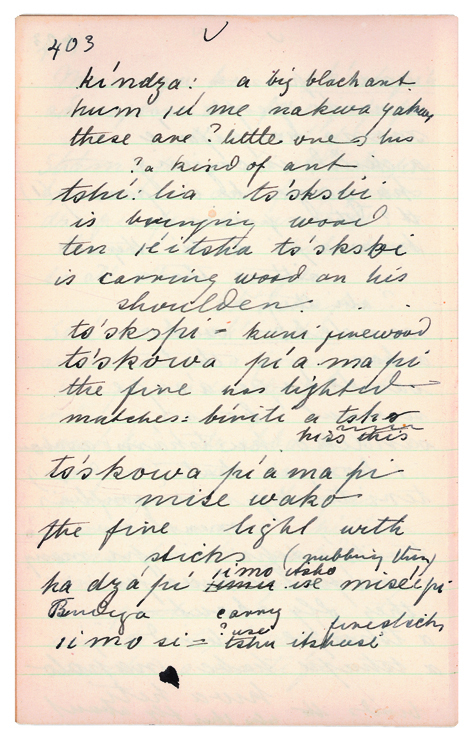 403
kíndza: a big black ant.
hum iú me nakwa yakwa
these are ? little ones his
? a kind of ant
tshí: lia tó'sksbi
is bringing wood
ten iéitsha tó'sksbi
is carring wood on his
shoulder.
tó'skspi = kuni firewood
tó'skówa pía ma pi
the fire was lighted
matches: bíriti a tsko
his this
tó'skowa pía ma pi
mise wako
the fire light with
sticks (rubbing them)
iimo itsko
ka dzá pí ise miseípi
Bendiga carry firesticks
? use
iimo si = tshu itskuasi